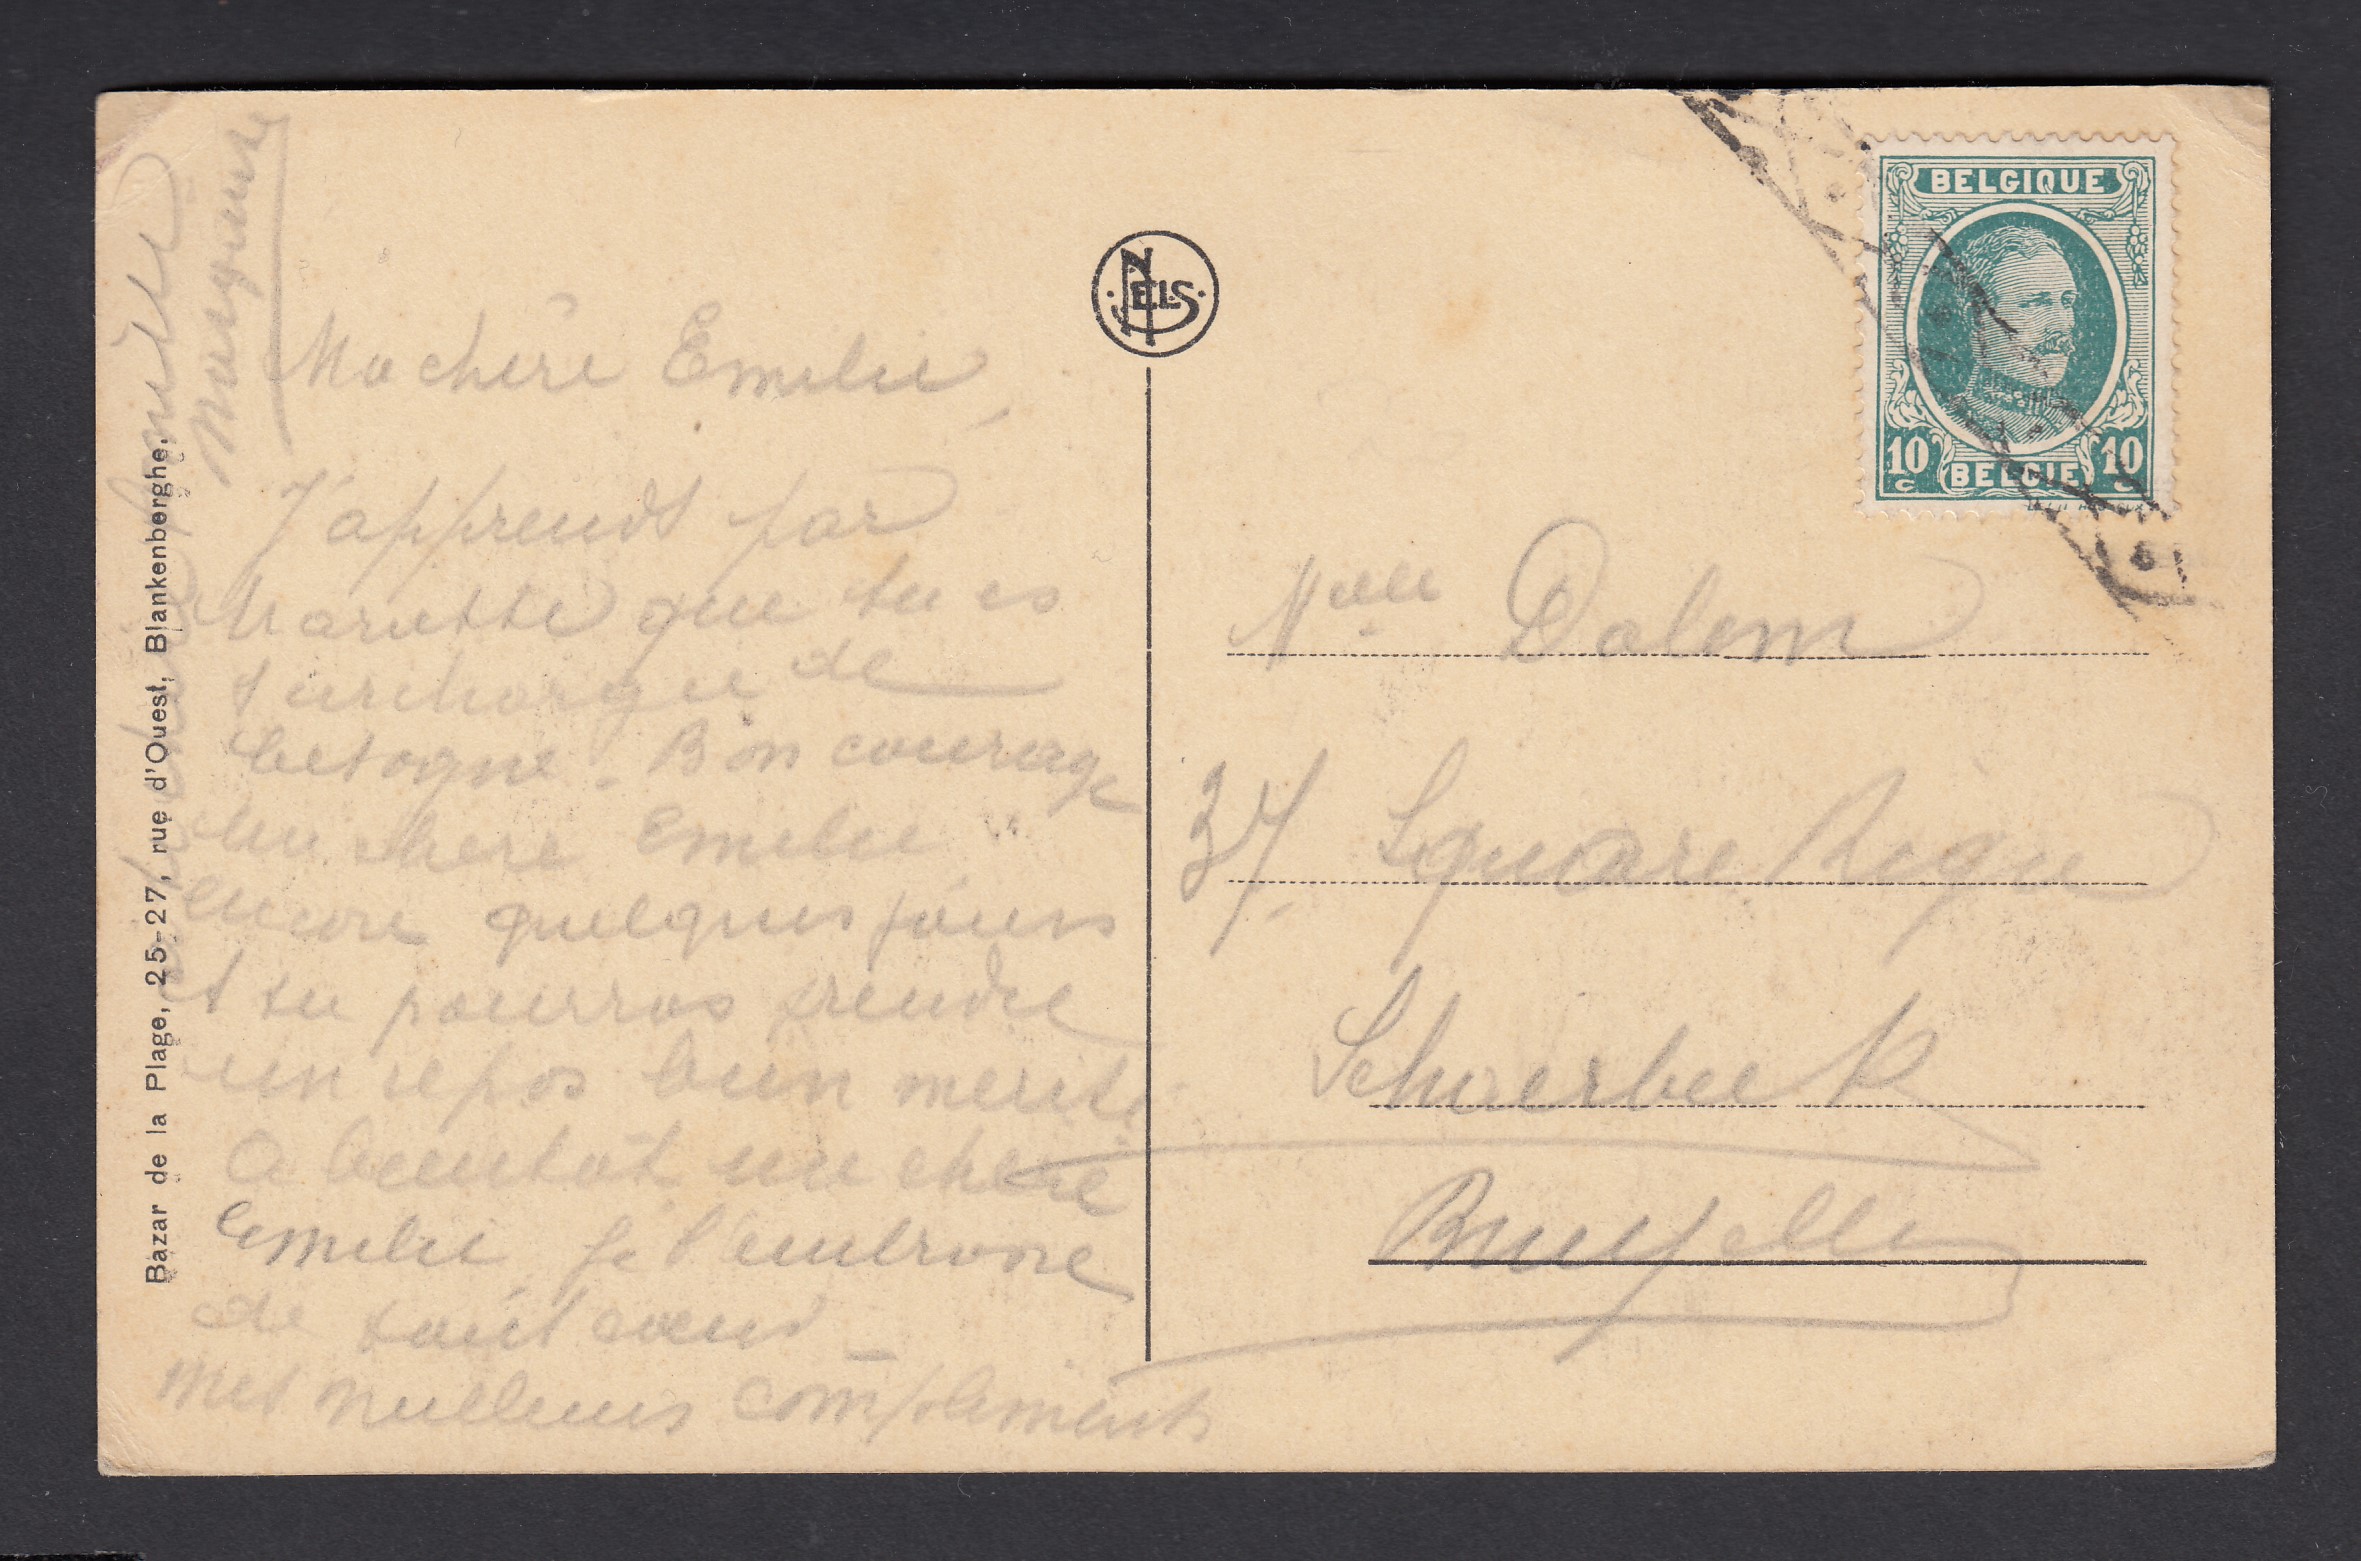 Ma chère Emilie,
J'apprends par
Mariette que tu es
surchargée de
besogne. Bon courage
ma chère Emilie
encore quelques jours
et tu pourras prendre
un repos bien mérité
A bientôt ma chère
Emilie je t'embrasse
de tout cœur
mes meilleurs compliments
famille
Marguerite
Bazar de la Plage, 25-27, rue d'Ouest, Blankenberghe.
NELS
BELGIQUE
10 c BELGIE 10 c
Melle Dalem
37 Square Rigua
Schaerbeek
Bruxelles